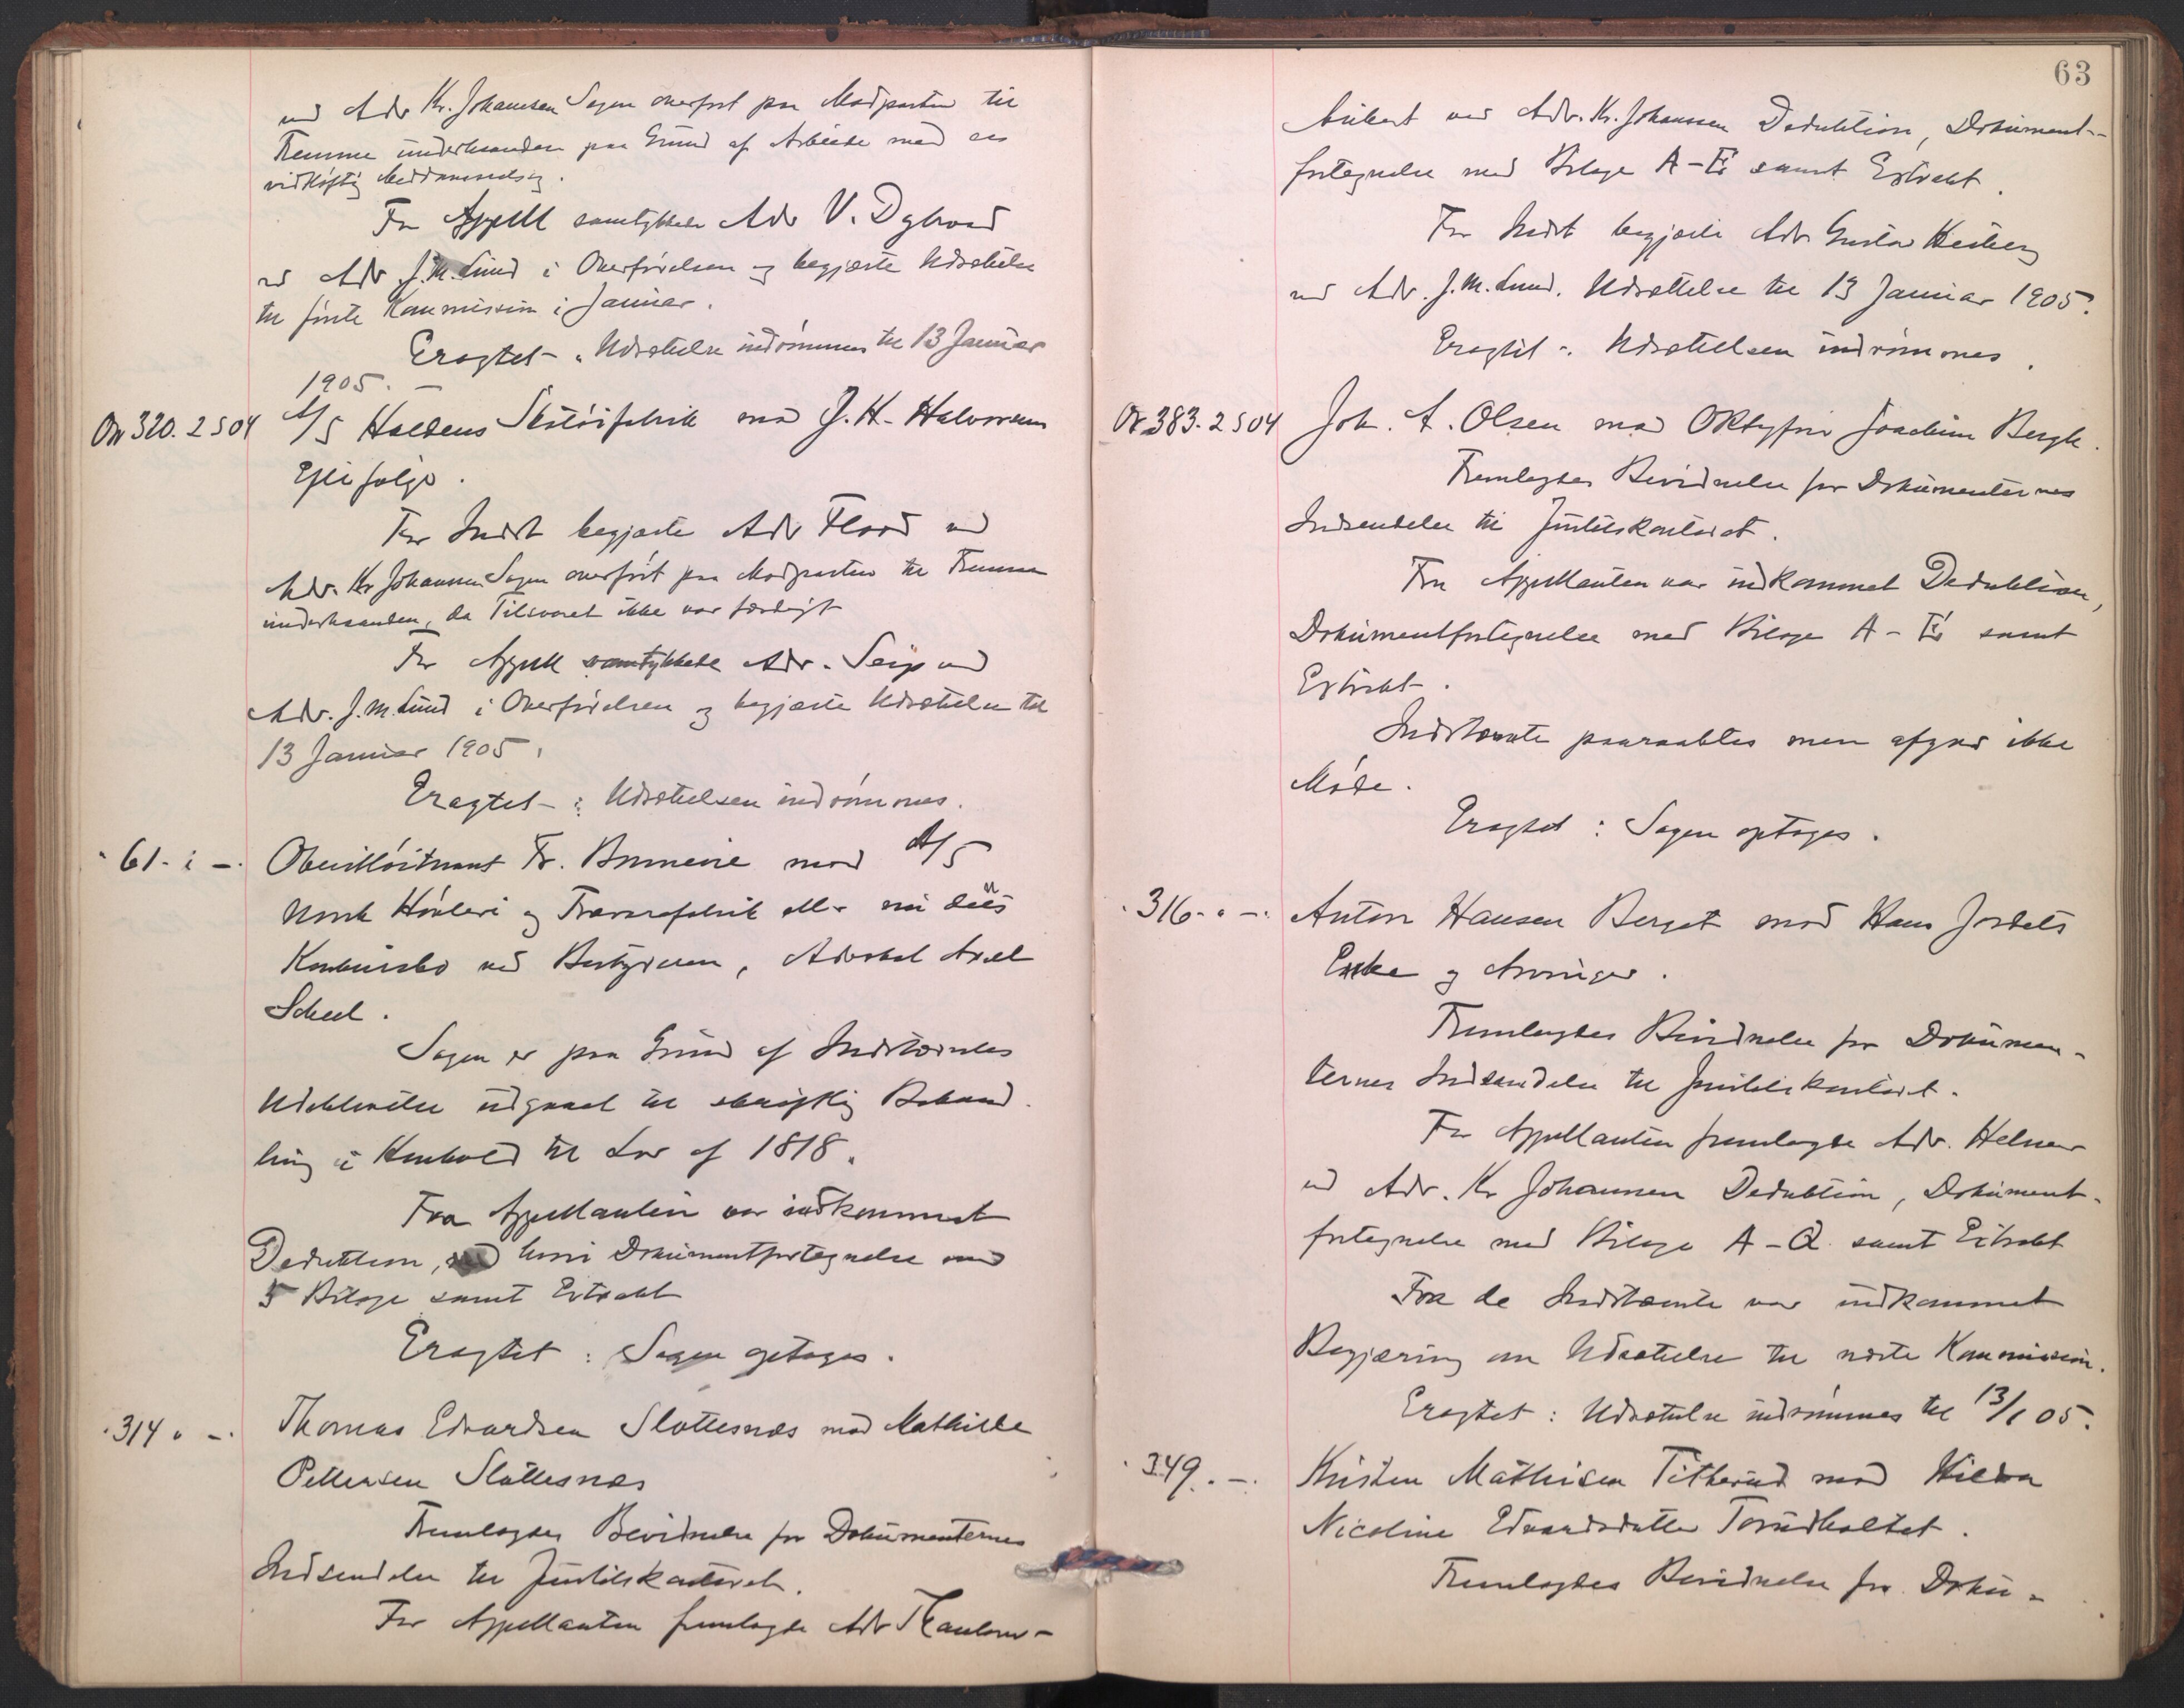 ved Adv Kr. Johanssen Sagen overført paa Modparten til
Fremme underhaanden paa Grund af Arbeide med en
vidløftig
For Appell samtykkede Adv V. Dybwad
ved Adv J.M. Lund i Overførelsen og begjærte Udsættelse
til første Kommission i Januar.
Eragtet: Udsættelse indrømmes til 13 Januar
1905. —
Or 320. 2 S 04 A/S Haldens Skotøifabrik mod J. H. Halvorsens
Efterfølge.
For Indst begjærte Adv Flood ved
Adv. Kr Johanssen Sagen overført paa Modparten til Fremme
underhaanden, da Tilsvaret ikke var færdigt
For Appell samtykkede Adv. Seip ved
Adv. J.M. Lund i Overførelsen og begjærte Udsættelse til
13 Januar 1905.
Eragtet: Udsættelsen indrømmes.
" 61 - i - . Oberstløitnant Fr. mod A/S
Norsk Høvleri og Trævarefabrik eller nu dets
Konkursbo ved Bestyreren, Advokat Axel
Scheel.
Sagen er paa Grund af Indstævntes
Udeblivelse udgaaet til skriftlig Behand-
ling i Henhold til Lov af 1818.
Fra Appellanten var indkommet
Deduktion, Dokumentfortegnelse med
5 Bilage samt Extrakt
Eragtet: Sagen optages.
" 314 " - . Thomas Edvardsen Slottesnæs mod Mathilde
Pettersen Slottesnæs
Fremlagdes Bevidnelse for Dokumenternes
Indsendelse til Justitskontoret.
For Appellanten fremlagde Adv Thaulow-
63
Aubert ved Adv. Kr. Johanssen Deduktion, Dokument-
fortegnelse med Bilage A-E samt Extrakt.
For Indst begjærte Adv Gustav Heiberg
ved Adv. J.M. Lund. Udsættelse til 13 Januar 1905.
Eragtet: Udsættelsen indrømmes.
Or 383. 2 S 04 Joh. A. Olsen mod Joachim Bergh.
Fremlagdes Bevidnelse for Dokumenternes
Indsendelse til Justitskontoret.
Fra Appellanten var indkommet Deduktion,
Dokumentfortegnelse med Bilage A-E samt
Extrakt.
Indstævnte paaraabtes men afgav ikke
Møde.
Eragtet: Sagen optages.
" 316 - " - . Anton Hansen Berget mod Hans Jordets
Enke og Arvinger.
Fremlagdes Bevidnelse for Dokumen-
ternes Indsendelse til Justitskontoret.
For Appellanten fremlagde Adv. Helmer
ved Adv. Kr Johanssen Deduktion, Dokument-
fortegnelse med Bilage A-Q samt Extrakt
Fra de Indstævnte var indkommet
Begjæring om Udsættelse til næste Kommission.
Eragtet: Udsættelse indrømmes til 13/1 05.
" 349. " - . Kristen Mathisen Titherud mod Hilda
Nicoline Edvardsdatter Torudholtet.
Fremlagdes Bevidnelse for Doku-